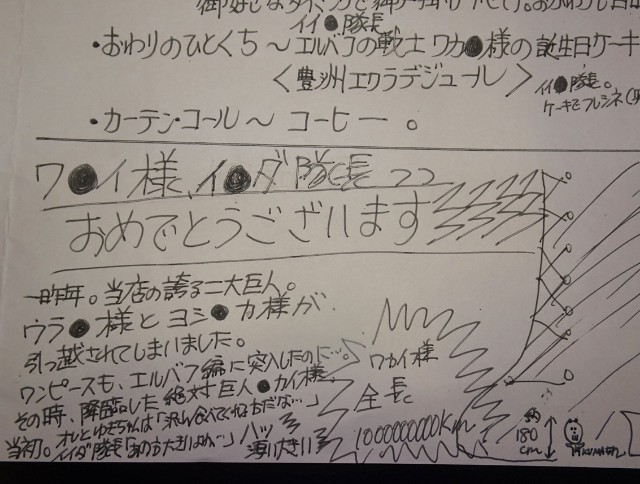 イイ●隊長
・おわりのひとくち〜エルバフの戦士ワカ●様の誕生日ケーキ
〈豊洲エクラデジュール〉
イイ●隊長。
ケーキモプレシネ
・カーテン・コール〜コーヒー。
ワ●イ様、イ●ダ隊長
おめでとうございます
一昨年。当店の誇る二大巨人。
ウラ●様とヨシ●カ様が
引っ越されてしまいました。
ワンピースも、エルバフ編に突入したのに…。
その時、降臨した絶対巨人●カイ様。
オレとゆきちゃんは「沢山食べてくれそうだな…」
当初。イイダ隊長「あの方大きいよね…」
ハッ
凄い大きい
ワカイ様
全長
1000000000Km
約
180
cm